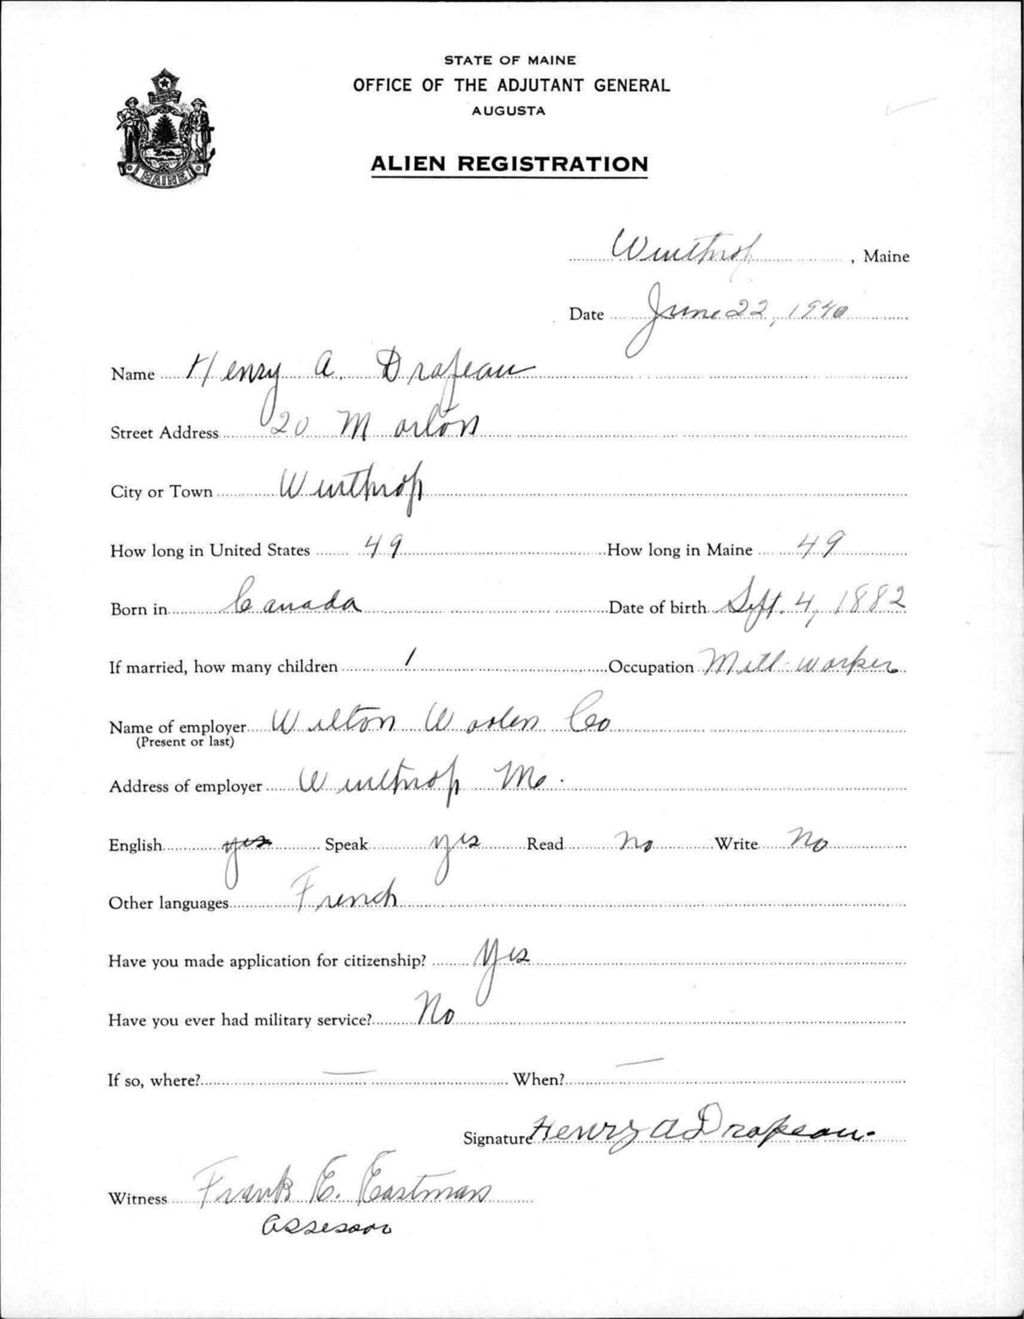 STATE OF MAINE
OFFICE OF THE ADJUTANT GENERAL
AUGUSTA
ALIEN REGISTRATION
MAINE
Winthrop, Maine
Date June 22, 1940
Name Henry A. Drapeau
Street Address 20 Morton
City or Town Winthrop
How long in United States 49 How long in Maine 49
Born in Canada Date of birth Sept. 4, 1882
If married, how many children 1 Occupation Mill-worker
Name of employer Wilton Woolen Co
(Present or last)
Address of employer Winthrop Me.
English yes Speak yes Read No Write No
Other languages French
Have you made application for citizenship? Yes
Have you ever had military service? No
If so, where? — When? —
Signature Henry A Drapeau.
Witness Frank E. Eastman
Assessor